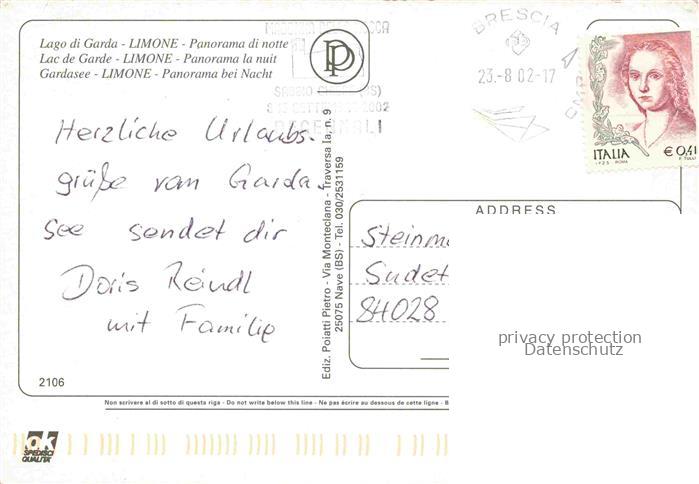 Lago di Garda - LIMONE - Panorama di notte
Lac de Garde - LIMONE - Panorama la nuit
Gardasee - LIMONE - Panorama bei Nacht
BRESCIA
23.-8 02-17
ITALIA
€ 0,41
Herzliche Urlaubs-
grüße vom Garda-
see sendet dir
Doris Reindl
mit Familie
2106
Ediz. Poiatti Pietro - Via Monteclana - Traversa Ia, n. 9
25075 Nave (BS) - Tel. 030/2531159
ADDRESS
Steinm
Sudet
84028
privacy protection
Datenschutz
Non scrivere al di sotto di questa riga - Do not write below this line - Ne pas écrire au dessous de cette ligne - B
ok
SPEDISCI
QUALITA'